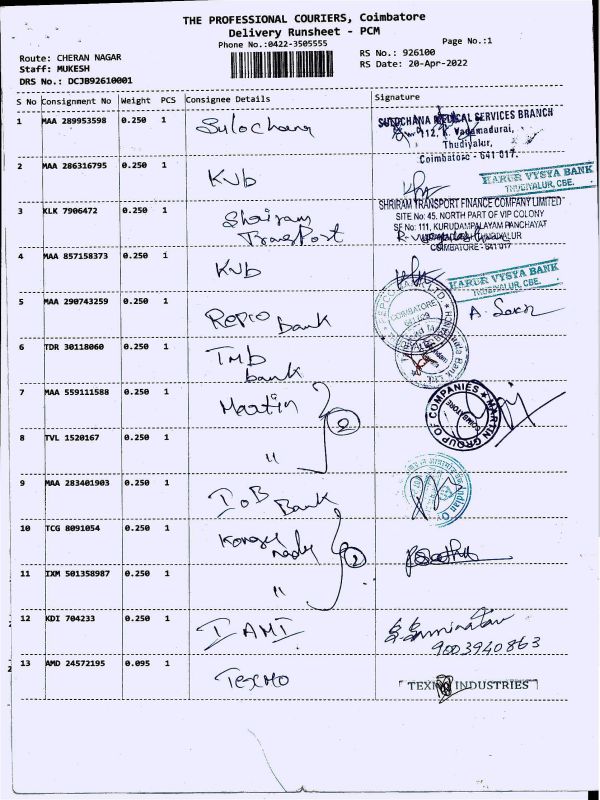 THE PROFESSIONAL COURIERS, Coimbatore
Delivery Runsheet - PCM
Phone No.:0422-3505555
Page No.:1
Route: CHERAN NAGAR
RS No.: 926100
Staff: MUKESH
RS Date: 20-Apr-2022
DRS No.: DCJB92610001
S No Consignment No Weight PCS Consignee Details Signature
1 MAA 289953598 0.250 1 Sulochana
SULOCHANA MEDICAL SERVICES BRANCH
Vadamadurai,
Thudiyalur,
Coimbatore - 641 017.
2 MAA 286316795 0.250 1 KVb
KARUR VYSYA BANK
THUDIYALUR, CBE.
3 KLK 7906472 0.250 1 Shriram
Transport
SHRIRAM TRANSPORT FINANCE COMPANY LIMITED
SITE No: 45, NORTH PART OF VIP COLONY
SF No: 111, KURUDAMPALAYAM PANCHAYAT
COIMBATORE - 641 017
4 MAA 857158373 0.250 1 KVb
KARUR VYSYA BANK
THUDIYALUR, CBE.
5 MAA 290743259 0.250 1 Repco bank
COIMBATORE
6 TDR 30118060 0.250 1 Tmb
bank
7 MAA 559111588 0.250 1 Martin
2
MARTIN GROUP OF COMPANIES
COIMBATORE
8 TVL 1520167 0.250 1 "
9 MAA 283401903 0.250 1 IOB Bank
10 TCG 8091054 0.250 1
11 IXM 501358987 0.250 1 "
12 KDI 704233 0.250 1 IAMI
9003940863
13 AMD 24572195 0.095 1 Texmo
INDUSTRIES